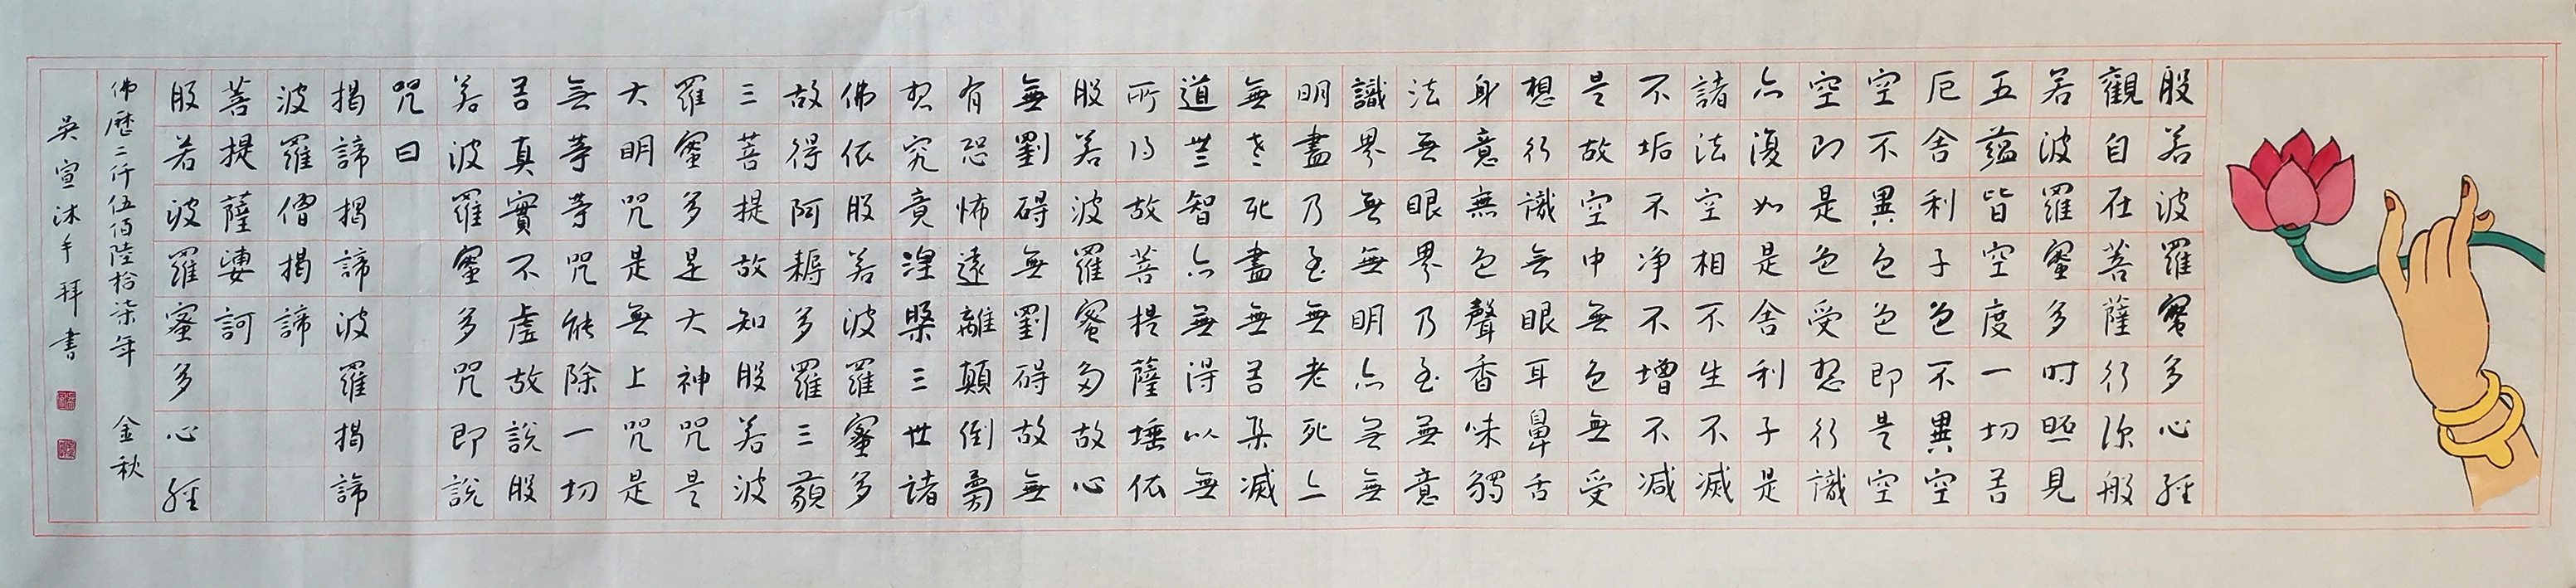 般若波羅蜜多心經
觀自在菩薩行深般
若波羅蜜多时照見
五蘊皆空度一切苦
厄舍利子色不異空
空不異色色即是空
空即是色受想行識
亦復如是舍利子是
諸法空相不生不滅
不垢不净不增不减
是故空中無色無受
想行識無眼耳鼻舌
身意無色聲香味觸
法無眼界乃至無意
識界無無明亦無無
明盡乃至無老死亦
無老死盡無苦集滅
道無智亦無得以無
所得故菩提薩埵依
般若波羅蜜多故心
無罣碍無罣碍故無
有恐怖遠離顛倒夢
想究竟涅槃三世諸
佛依般若波羅蜜多
故得阿耨多羅三藐
三菩提故知般若波
羅蜜多是大神咒是
大明咒是無上咒是
無等等咒能除一切
苦真實不虛故說般
若波羅蜜多咒即說
咒曰
揭諦揭諦波羅揭諦
波羅僧揭諦
菩提薩婆訶
般若波羅蜜多心經
佛歷二仟伍佰陸拾柒年 金秋
吳宣沐手拜書